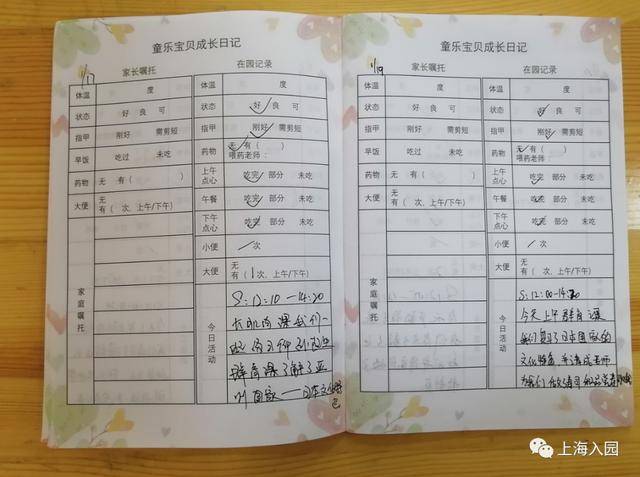 童乐宝贝成长日记
家长嘱托 在园记录
体温 度 体温 度
状态 好 良 可 状态 好 良 可
指甲 刚好 需剪短 指甲 刚好 需剪短
早饭 吃过 未吃 药物 无 有( )
喂药老师:
药物 无 有( ) 上午点心 吃完 部分 未吃
大便 无
有( 次、上午/下午) 午餐 吃完 部分 未吃
下午点心 吃完 部分 未吃
小便 次
大便 无
有(1次、上午/下午)
家庭嘱托
今日活动
S:12:10-14:20
童乐宝贝成长日记
1/19
家长嘱托 在园记录
体温 度 体温 度
状态 好 良 可 状态 好 良 可
指甲 刚好 需剪短 指甲 刚好 需剪短
早饭 吃过 未吃 药物 无 有( )
喂药老师:
药物 无 有( ) 上午点心 吃完 部分 未吃
大便 无
有( 次、上午/下午) 午餐 吃完 部分 未吃
下午点心 吃完 部分 未吃
小便 次
大便 无
有( 次、上午/下午)
家庭嘱托
今日活动
今天上午群育课
我们复习了日本国家的
上海入园